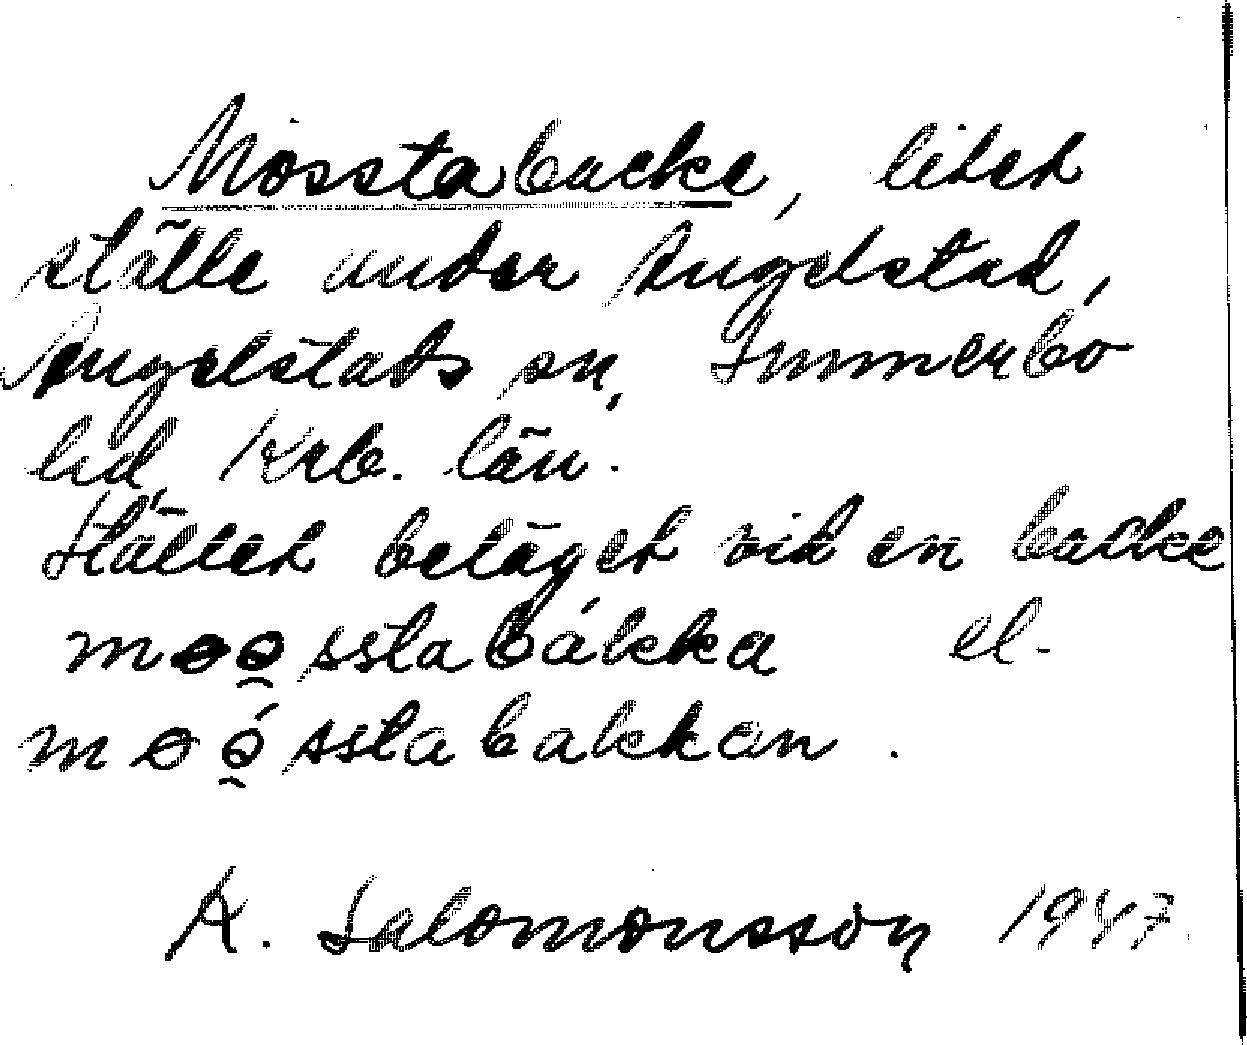 Mosstabacke, litet
ställe under Angelstad,
Angelstads sn, Sunnerbo
hd, Krb. län.
Stället beläget vid en backe
mɵɵ̯sstabákka el.
mɵɵ̯́sstabakkan.
A. Salomonsson 1947.